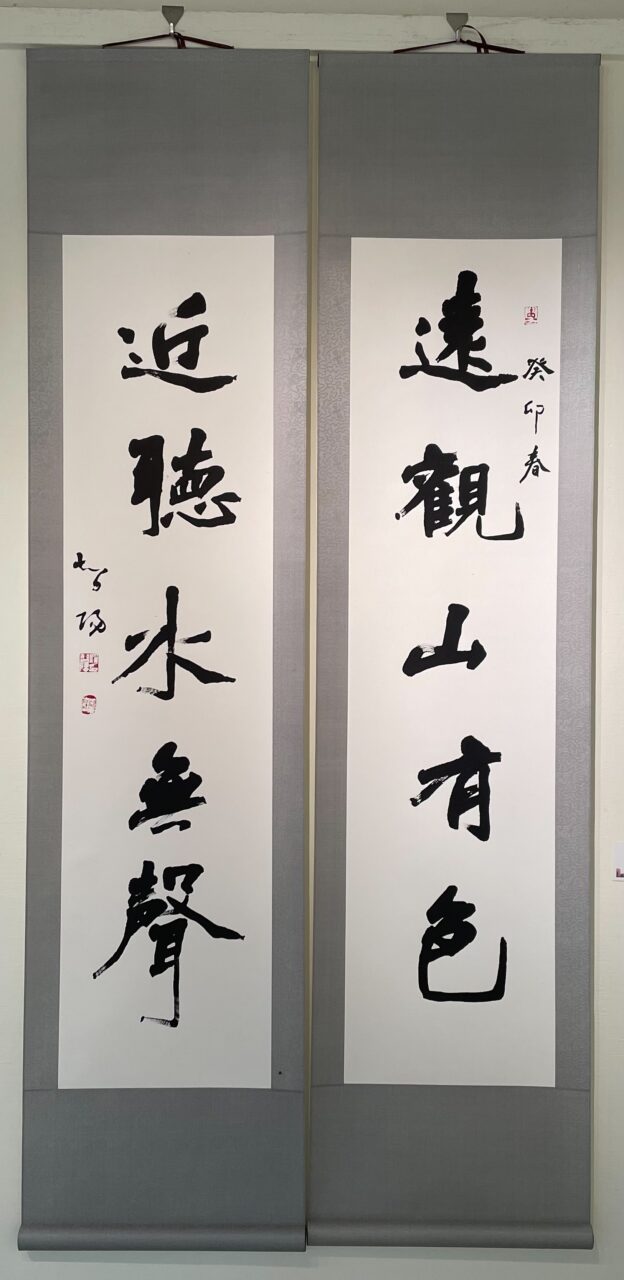 遠觀山有色
癸卯春
近聽水無聲